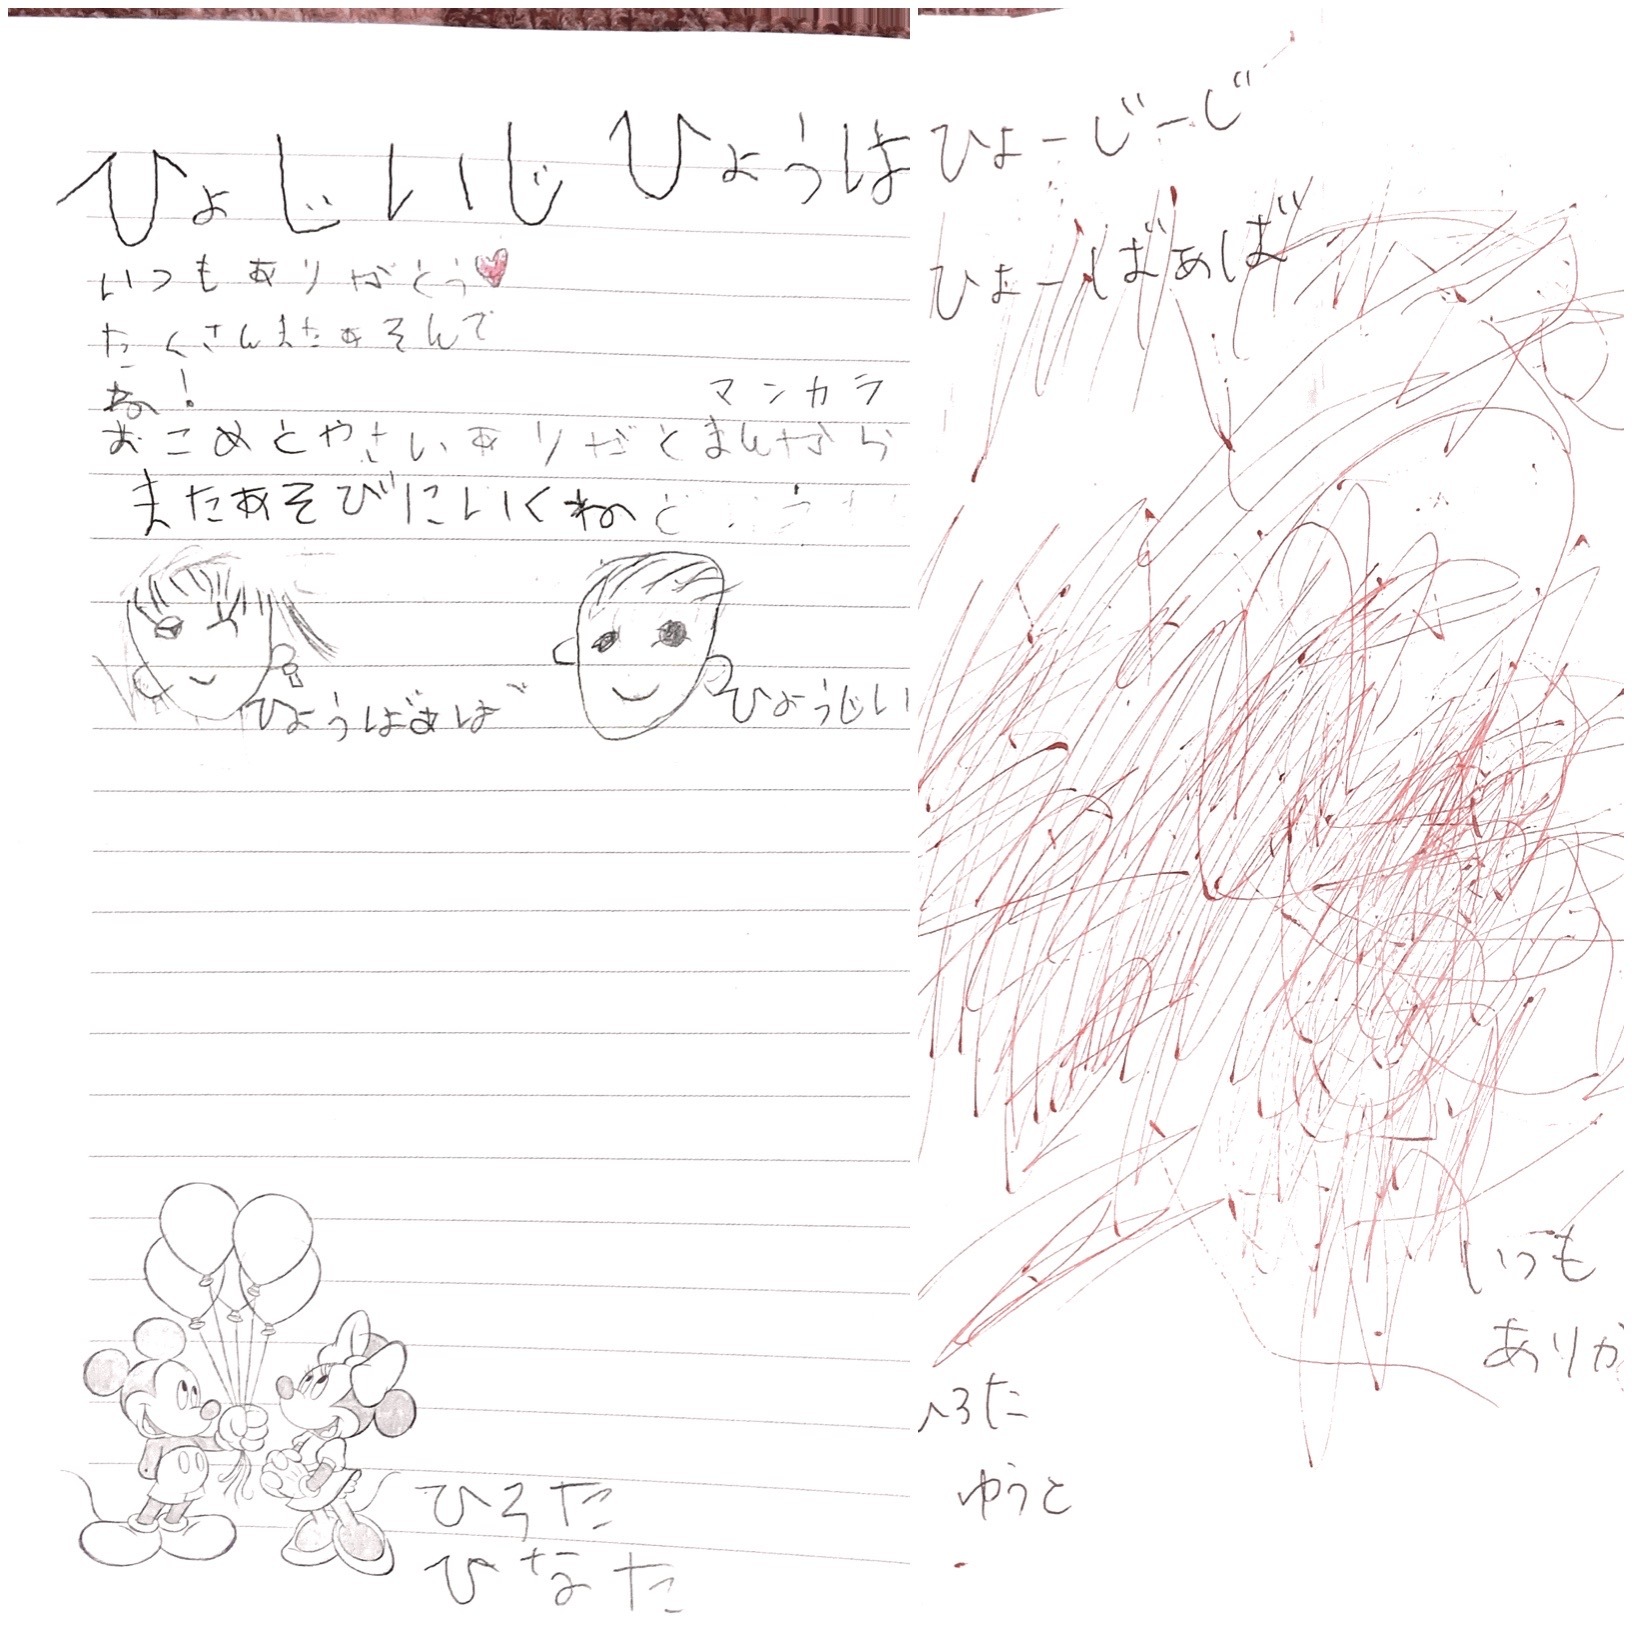 ひょじいじ ひょうは
いつもありがとう
たくさんまたあそんで
ね!
マンカラ
おこめとやさいありがとまんから
またあそびにいくねど う
ひょうばあば
ひょうじい
ひろた
ひなた
ひょーじーじ
ひょーばあば
いつも
ありが
ひろた
ゆうと